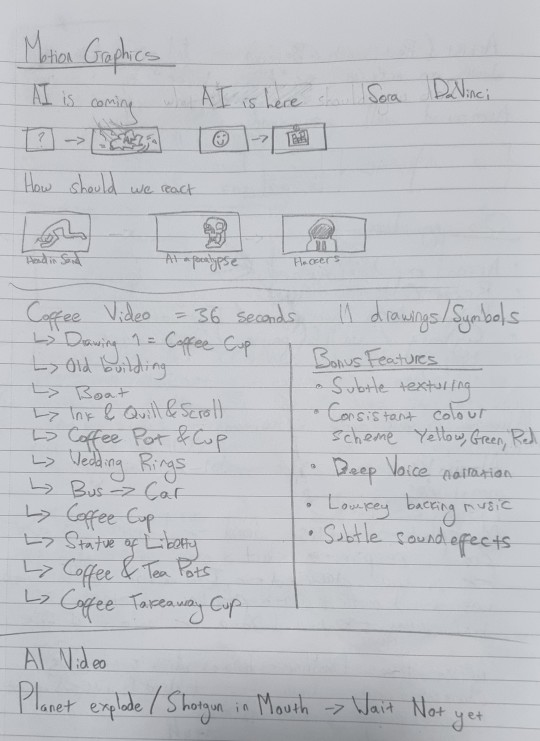 Motion Graphics
AI is coming AI is here Sora DaVinci
?
How should we react
Head in Sand AI apocalypse Hackers
Coffee Video = 36 seconds 11 drawings/Symbols
↳ Drawing 1 = Coffee Cup
↳ Old building
↳ Boat
↳ Ink & Quill & Scroll
↳ Coffee Pot & Cup
↳ Wedding Rings
↳ Bus → Car
↳ Coffee Cup
↳ Statue of Liberty
↳ Coffee & Tea Pots
↳ Coffee Takeaway Cup
Bonus Features
• Subtle texturing
• Consistant colour
scheme Yellow, Green, Red
• Deep Voice narration
• Lowkey backing music
• Subtle sound effects
AI Video
Planet explode / Shotgun in Mouth → Wait Not yet